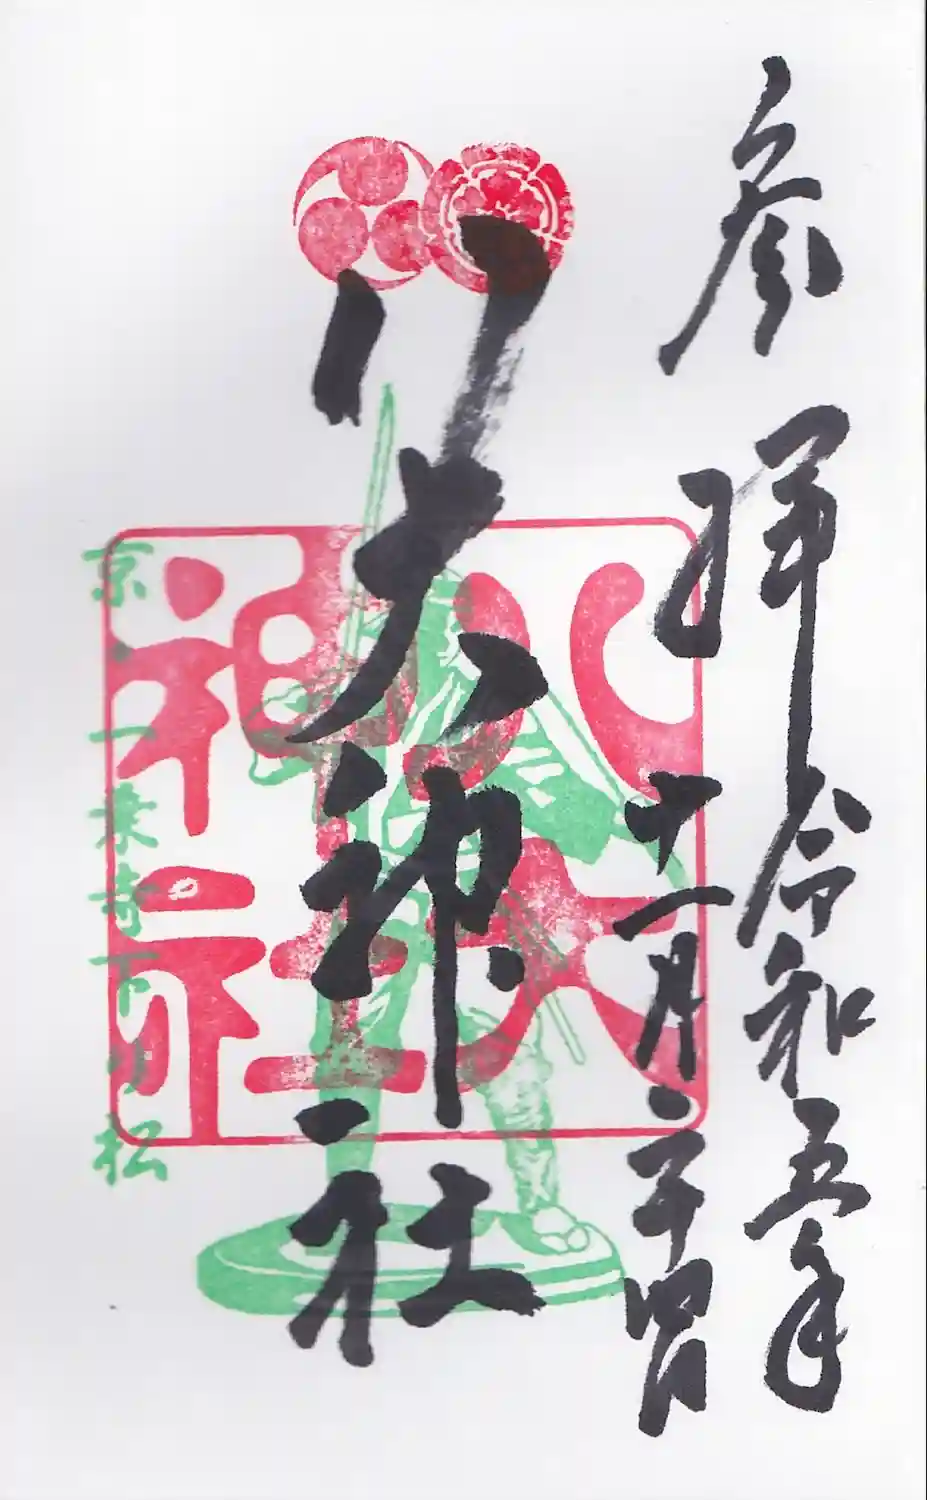 参拝 令和五年
十一月二十四日
八大神社
八大神社
京都一乗寺下り松